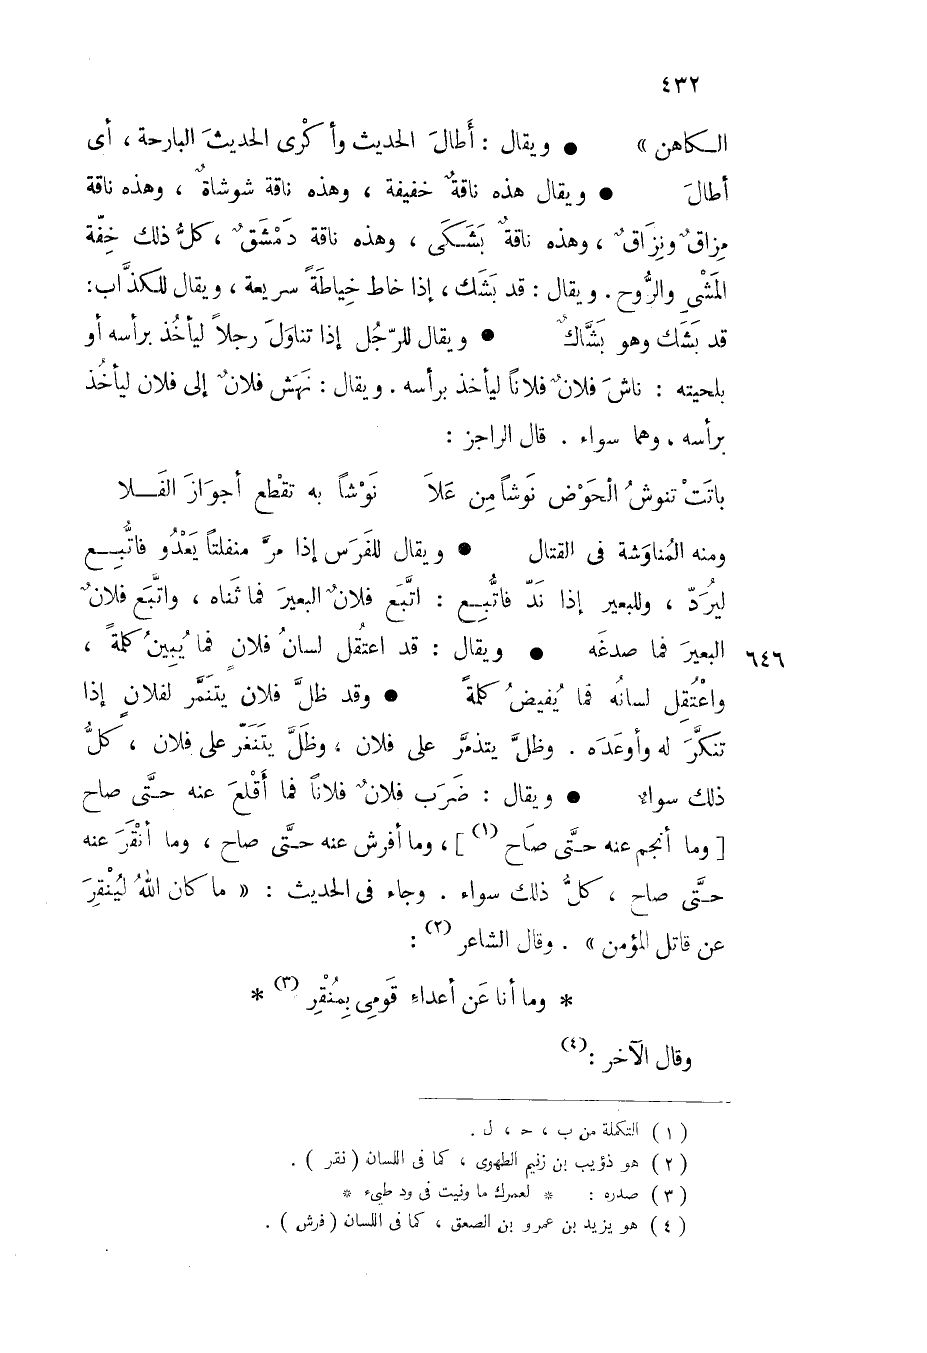 ٤٣٢
الـكاهن » ● ويقال : أَطالَ الحديث وأكْرى الحديثَ البارحة ، أى
أطالَ ● ويقال هذه ناقةٌ خفيفة ، وهذه ناقة شوشاةٌ ، وهذه ناقة
مِزاقٌ ونِزَاقٌ ، وهذه ناقةٌ بَشَـكَى ، وهذه ناقة دَمْشَقٌ ، كلُّ ذلك خِفّة
المَشْىِ والرُّوح . ويقال : قد بَشَك ، إذا خاط خِياطَةً سريعة ، ويقال للكذَّاب :
قد بَشَك وهو بَشَّاكٌ ● ويقال للرّجُل إذا تناوَلَ رجلاً ليأخُذ برأسه أو
بلحيته : ناشَ فلانٌ فلاناً ليأخذ برأسه . ويقال : نَهَش فلانٌ إلى فلان ليأخُذ
برأسه ، وهما سواء . قال الراجز :
باتَتْ تنوشُ الْحَوْض نَوشاً مِن عَلاَ نَوْشاً به تقطْع أجوَازَ الفَـلا
ومنه المُناوَشة فى القتال ● ويقال للفَرَس إذا مرَّ منفلتاً يَعْدُو فاتُّبِـع
ليُرَدّ ، وللبعير إذا نَدّ فاتُّبِـع : اتَّبَع فلانٌ البعيرَ فما ثَناه ، واتَّبَع فلانٌ
البعيرَ فما صدغَه ● ويقال : قد اعتُقل لسانُ فلانٍ فما يُبِينُ كلمةً ، ٦٤٦
واعْتُقِل لسانُه فما يُفيضُ كلمةً ● وقد ظلَّ فلان يتنَمَّر لفلانٍ إذا
تنكَّرَ له وأوعَدَه . وظلَّ يتذمَّر على فلان ، وظَلَّ يتَنَغَّر على فلان ، كلُّ
ذلك سواء ● ويقال : ضَرَب فلانٌ فلاناً فما أَقْلعَ عنه حتَّى صاح
[ وما أنجم عنه حتَّى صَاح (١) ] ، وما أفرش عنه حتَّى صاح ، وما أنْقَرَ عنه
حتَّى صاح ، كلُّ ذلك سواء . وجاء فى الحديث : « ما كان اللهُ ليُنْقِرَ
عن قاتل المؤمن » . وقال الشاعر (٢) :
* وما أنا عَن أعداءِ قَومِى بِمنْقِر (٣) *
وقال الآخر : (٤)
( ١ ) التكملة من ب ، ح ، ل .
( ٢ ) هو ذؤيب بن زنيم الطهوى ، كما فى اللسان ( نقر ) .
( ٣ ) صدره : * لعمرك ما ونيت فى ود طيىء *
( ٤ ) هو يزيد بن عمرو بن الصعق ، كما فى اللسان ( فرش ) .